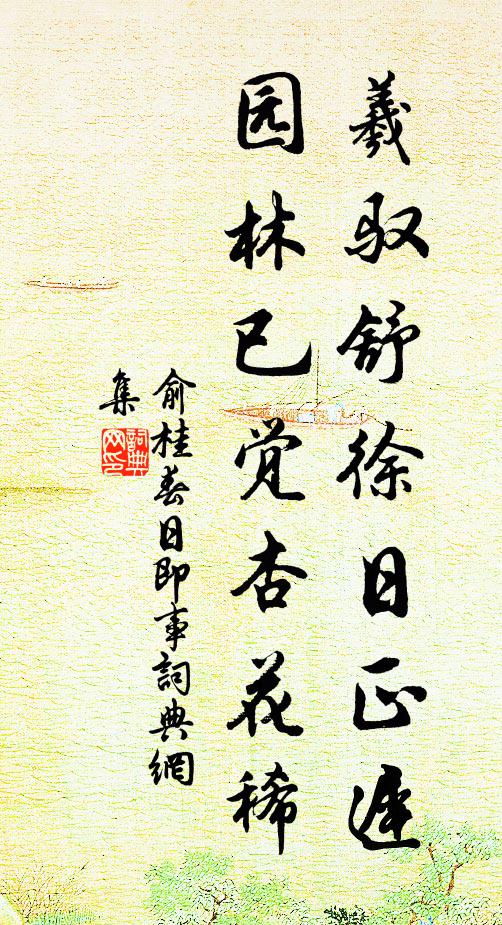 羲驭舒徐日正遲
园林已觉杏花稀
俞桂春日即事詞典網
集
詞典網印